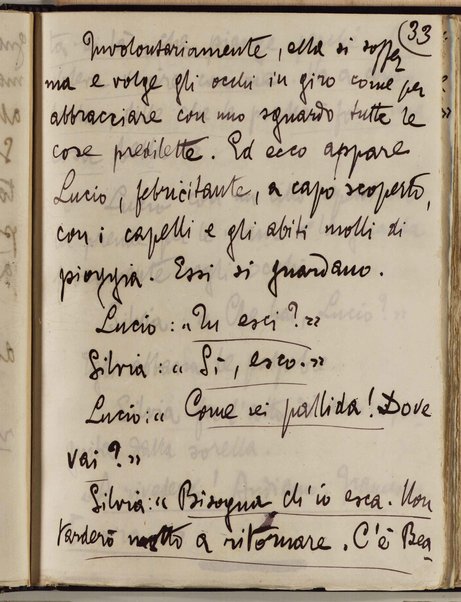 33
Involontariamente, ella si soffer
ma e volge gli occhi in giro come per
abbracciare con uno sguardo tutte le
cose predilette. Ed ecco appare
Lucio, febricitante, a capo scoperto,
con i capelli e gli abiti molli di
pioggia. Essi si guardano.
Lucio: « Tu esci? »
Silvia: « Sì, esco. »
Lucio: « Come sei pallida! Dove
vai? »
Silvia: « Bisogna ch'io esca. Non
tarderò molto a ritornare. C'è Bea-